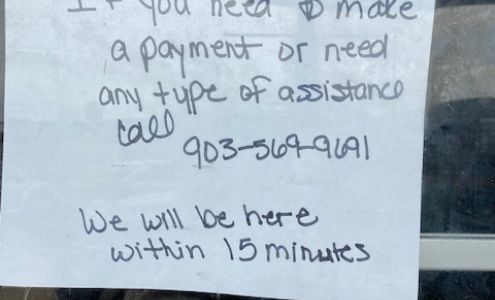 If you need to make
a payment or need
any type of assistance
call
903-569-9691
We will be here
within 15 minutes